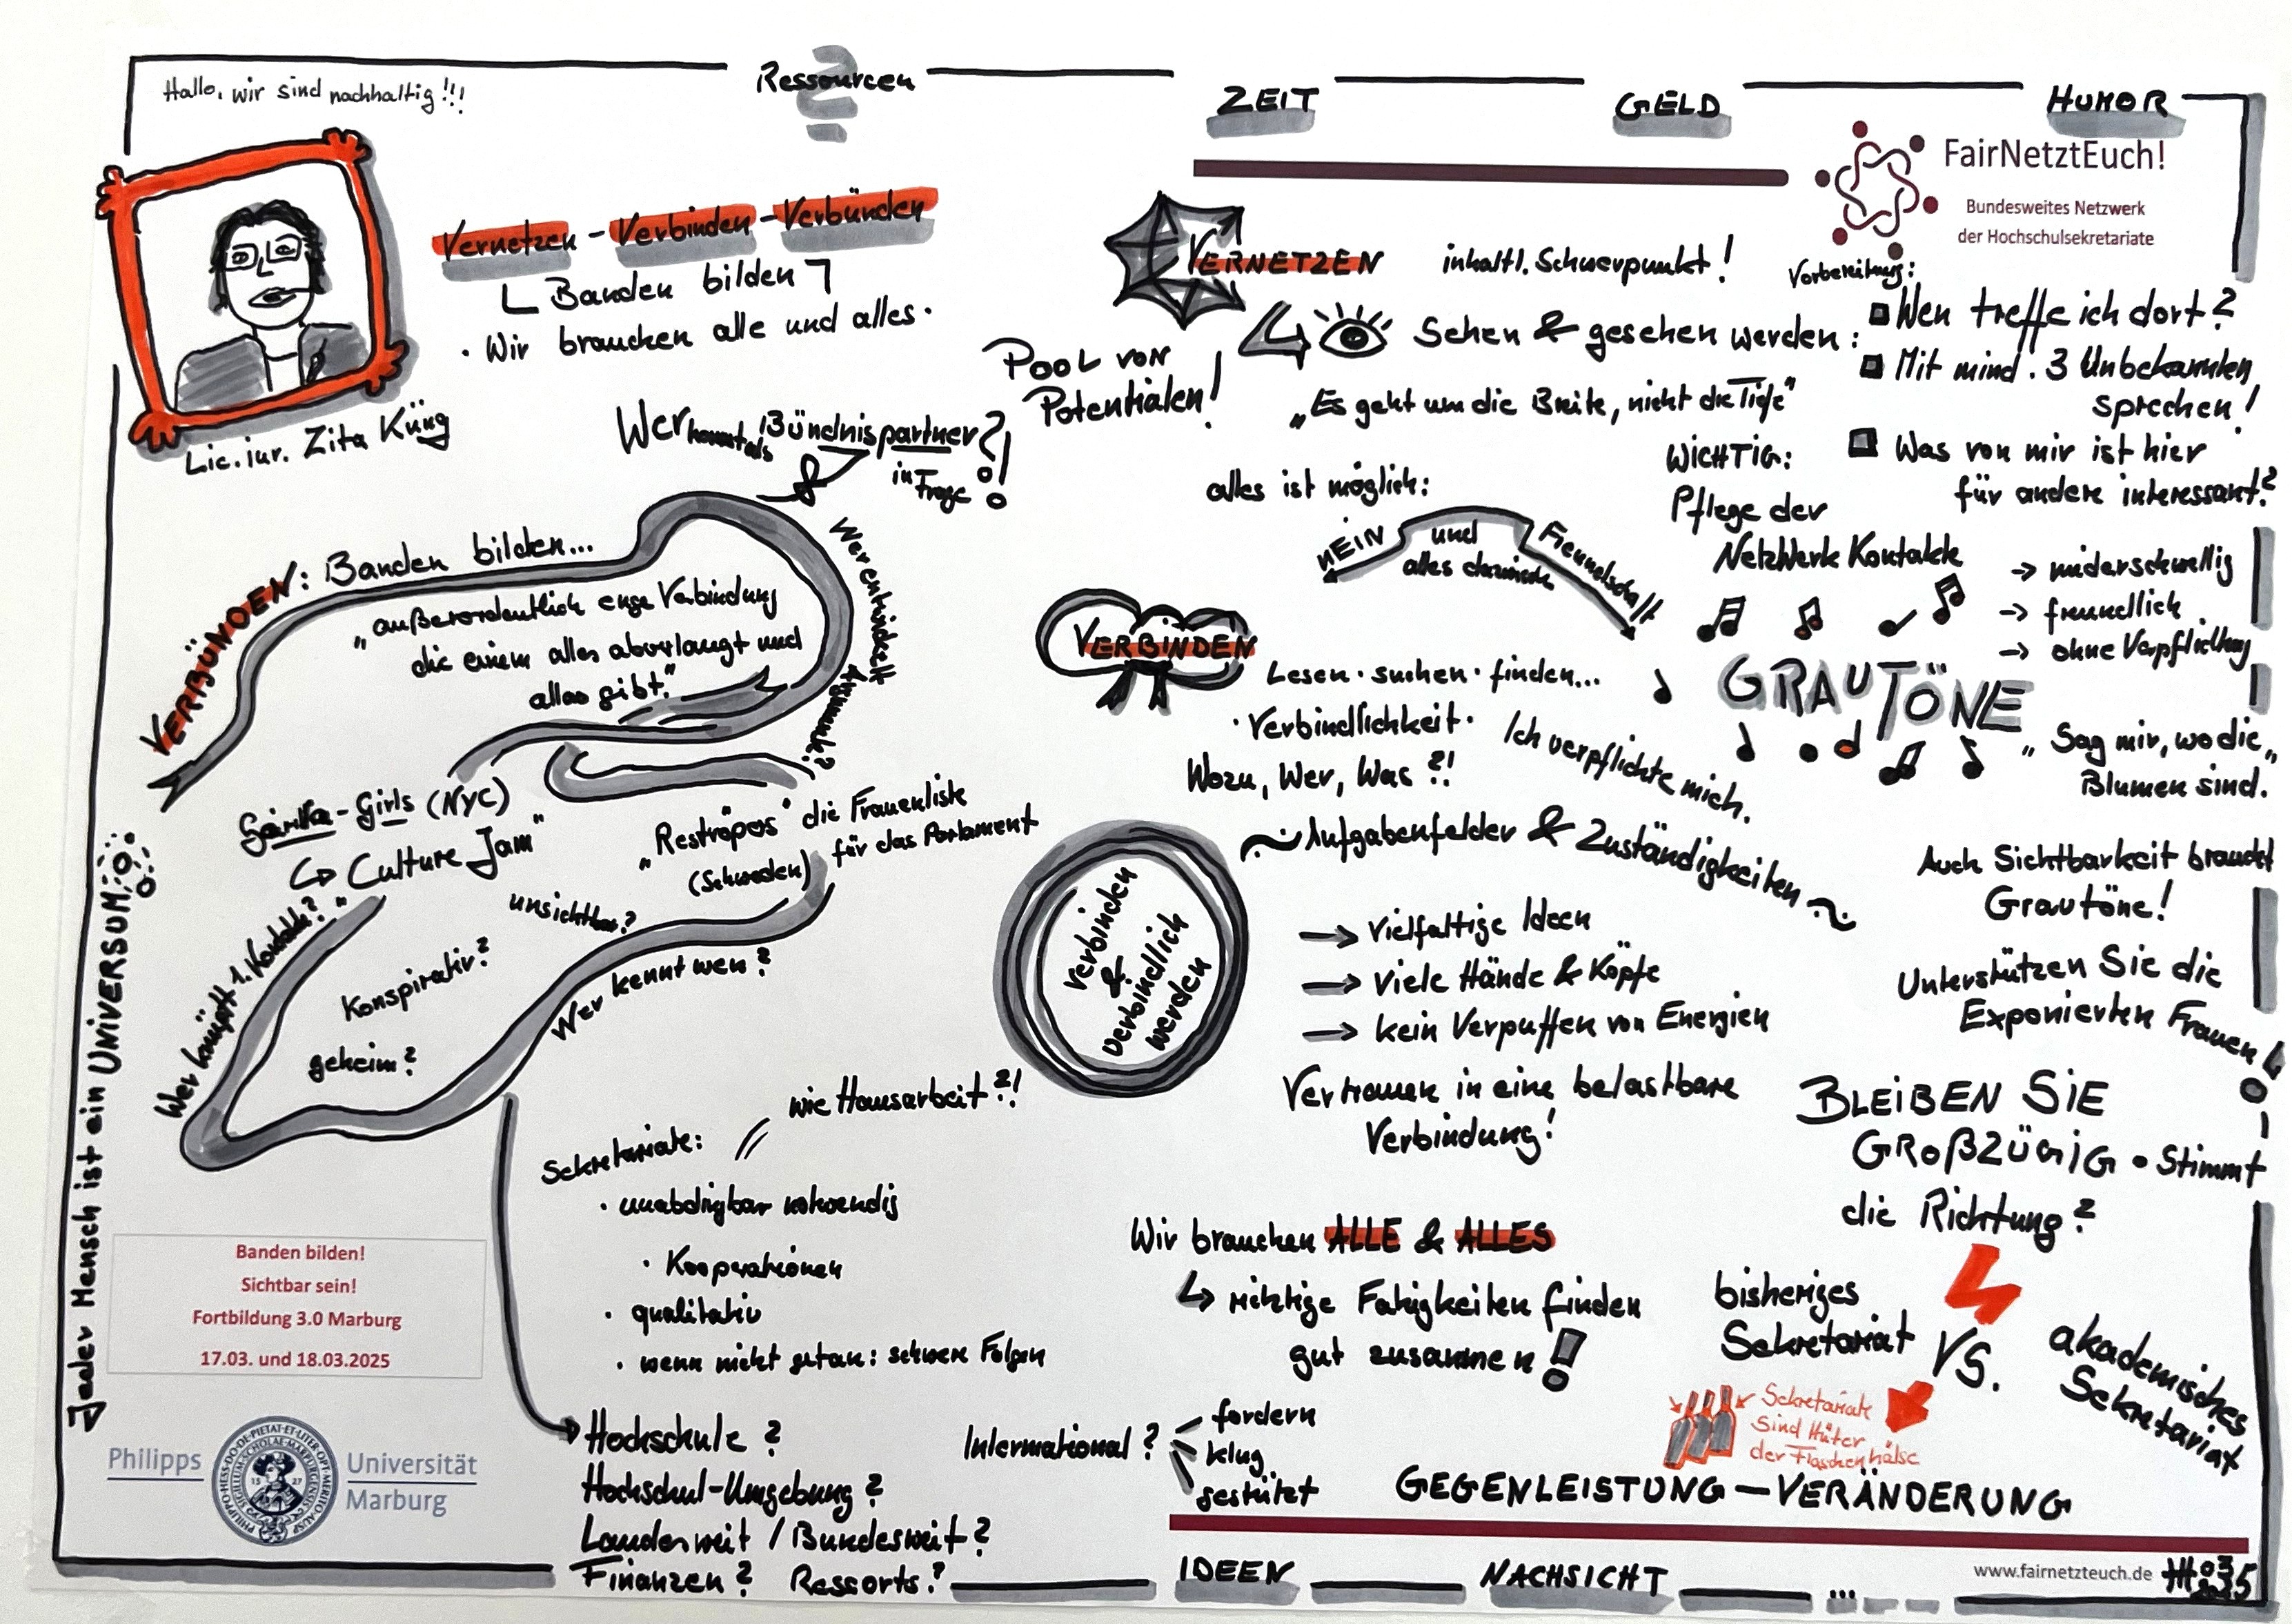 Hallo, wir sind nachhaltig!!!
Ressourcen
?
ZEIT
GELD
HUMOR
FairNetztEuch!
Bundesweites Netzwerk
der Hochschulsekretariate
Lic. iur. Zita Küng
Vernetzen - Verbinden - Verbünden
Banden bilden
· Wir brauchen alle und alles ·
Wer kommt als Bündnispartner?!
in Frage
Pool von
Potentialen!
VERNETZEN
inhaltl. Schwerpunkt!
Sehen & gesehen werden:
„Es geht um die Breite, nicht die Tiefe"
Vorbereitung:
Wen treffe ich dort?
Mit mind. 3 Unbekannten
sprechen!
Was von mir ist hier
für andere interessant?
alles ist möglich:
NEIN
und
alles dazwischen
Freundschaft
WICHTIG:
Pflege der
Netzwerk Kontakte
→ niderschwellig
→ freundlich
→ ohne Verpflichtung
VERBÜNDEN: Banden bilden...
„außerordentlich enge Verbindung
die einem alles abverlangt und
alles gibt."
Wer entwickelt
Argumente?
-Girls (NYC)
↳ Culture Jam"
„Reströpos" die Frauenliste
(Schweden) für das Parlament
unsichtbar?
Wer knüpft 1. Kontakt?
Konspirativ?
geheim?
Wer kennt wen?
Jeder Mensch ist ein UNIVERSUM
VERBINDEN
Lesen · suchen · finden...
· Verbindlichkeit ·
Wozu, Wer, Was ?!
Ich verpflichte mich.
~ Aufgabenfelder & Zuständigkeiten ~
Verbinden
&
verbindlich
werden
→ vielfaltige Ideen
→ viele Hände & Köpfe
→ kein Verpuffen von Energien
Vertrauen in eine belastbare
Verbindung!
GRAUTÖNE
„Sag mir, wo die"
Blumen sind.
Auch Sichtbarkeit braucht
Grautöne!
Unterstützen Sie die
Exponierten Frauen!
BLEIBEN SIE
GROßZÜGIG • Stimmt
die Richtung?
Sekretariate:
wie Hausarbeit?!
· unabdingbar notwendig
· Kooperationen
· qualitativ
· wenn nicht getan: schwere Folgen
Wir brauchen ALLE & ALLES
↳ richtige Fähigkeiten finden
gut zusammen!
bisheriges
Sekretariat
VS.
akademisches
Sekretariat
Sekretariate
sind Hüter
der Flaschenhälse
Hochschule?
Hochschul-Umgebung?
Landesweit / Bundesweit?
Finanzen? Ressorts?
International?
fordern
klug
gestützt
GEGENLEISTUNG — VERÄNDERUNG
Banden bilden!
Sichtbar sein!
Fortbildung 3.0 Marburg
17.03. und 18.03.2025
Philipps
Universität
Marburg
15 27
IDEEN
NACHSICHT
...
www.fairnetzteuch.de